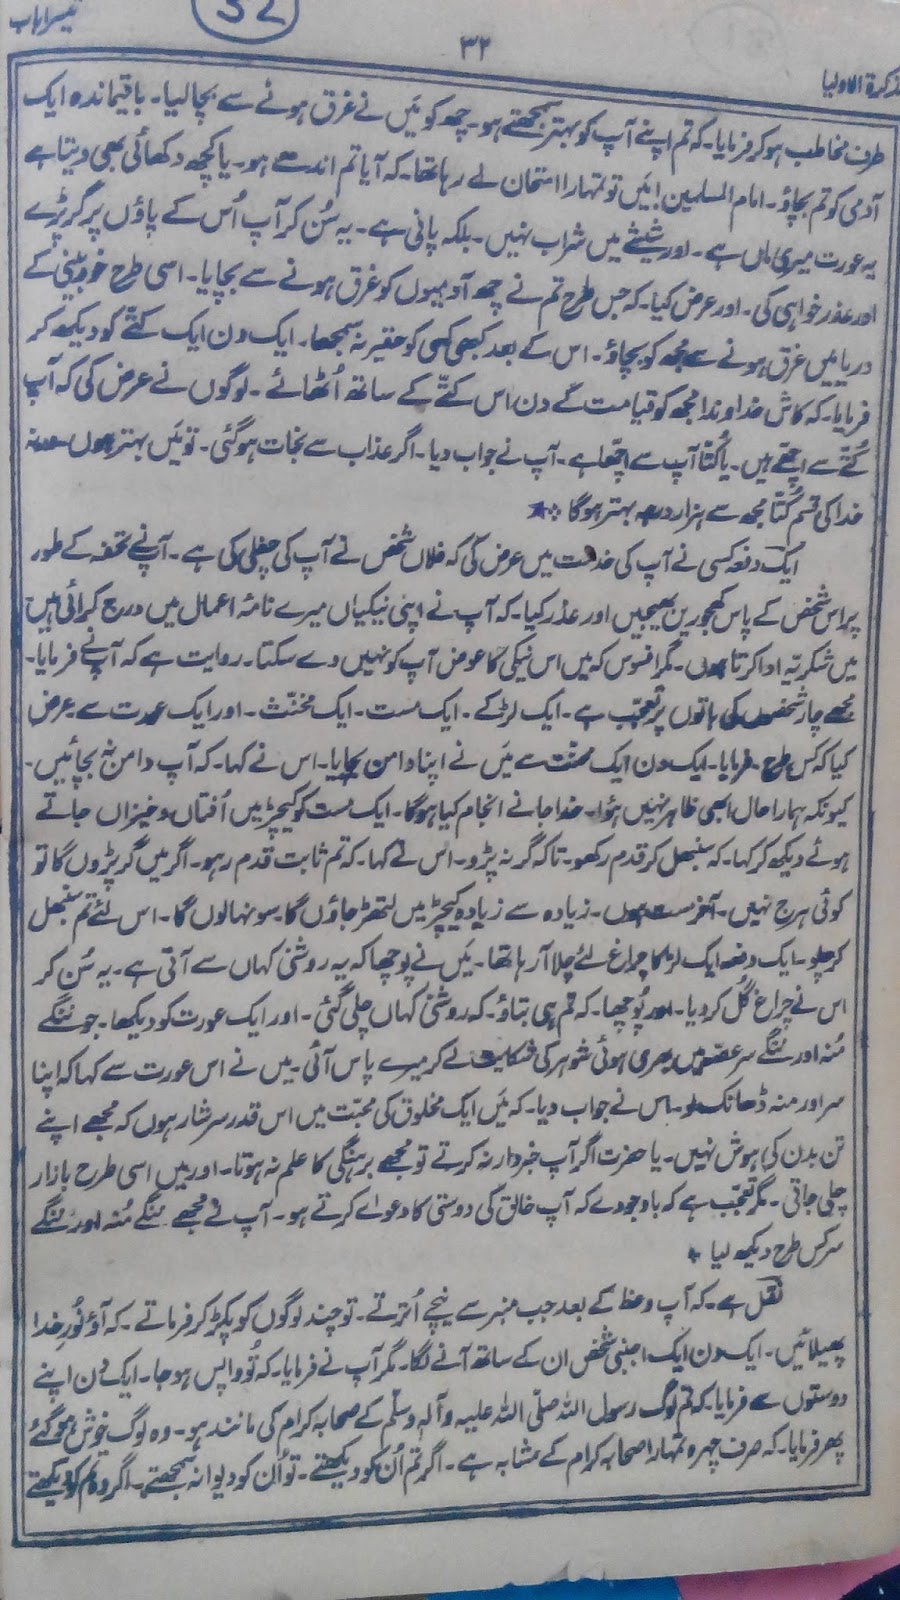 تیسرا باب
32
۳۲
تذکرۃ الاولیا
طرف مخاطب ہو کر فرمایا۔ کہ تم اپنے آپ کو بہتر سمجھتے ہو۔ چھ کو میَں نے غرق ہونے سے بچالیا۔ باقیماندہ ایک
آدمی کو تم بچاؤ۔ امام المسلمین! میَں تو تمہارا امتحان لے رہا تھا۔ کہ آیا تم اندھے ہو۔ یا کچھ دکھائی بھی دیتا ہے
یہ عورت میری ماں ہے۔ اور شیشے میں شراب نہیں۔ بلکہ پانی ہے۔ یہ سُن کر آپ اُس کے پاؤں پر گر پڑے
اور عذر خواہی کی۔ اور عرض کیا۔ کہ جس طرح تم نے چھ آدمیوں کو غرق ہونے سے بچایا۔ اسی طرح خود بینی کے
دریا میں غرق ہونے سے مجھ کو بچاؤ۔ اس کے بعد کبھی کسی کو حقیر نہ سمجھا۔ ایک دن ایک کتّے کو دیکھ کر
فرمایا۔ کہ کاش خداوندا مجھ کو قیامت کے دن اس کتّے کے ساتھ اُٹھائے۔ لوگوں نے عرض کی کہ آپ
کُتّے سے اچھے ہیں۔ یا کُتّا آپ سے اچھا ہے۔ آپ نے جواب دیا۔ اگر عذاب سے نجات ہو گئی۔ تو میَں بہتر ہوں ورنہ
خدا کی قسم کُتّا مجھ سے ہزار درجہ بہتر ہوگا
ایک دفعہ کسی نے آپ کی خدمت میں عرض کی کہ فلاں شخص نے آپ کی چغلی کی ہے۔ آپ نے تحفہ کے طور
پر اس شخص کے پاس کھجوریں بھیجیں اور عذر کیا۔ کہ آپ نے اپنی نیکیاں میرے نامۂ اعمال میں درج کرائی ہیں
میں شکریّہ ادا کرتا ہوں۔ مگر افسوس کہ میں اس نیکی کا عوض آپ کو نہیں دے سکتا۔ روایت ہے کہ آپ نے فرمایا۔
مجھے چار شخصوں کی باتوں پر تعجّب ہے۔ ایک لڑکے۔ ایک مست۔ ایک مخنّث۔ اور ایک عورت سے عرض
کیا کہ کس طرح۔ فرمایا۔ ایک دن ایک مخنّث سے میَں نے اپنا دامن بچایا۔ اس نے کہا۔ کہ آپ دامن نہ بچائیں۔
کیونکہ ہمارا حال ابھی ظاہر نہیں ہوُا۔ خدا جانے انجام کیا ہوگا۔ ایک مست کو کیچڑ میں اُفتاں و خیزاں جاتے
ہوئے دیکھ کر کہا۔ کہ سنبھل کر قدم رکھو۔ تاکہ گر نہ پڑو۔ اس نے کہا۔ کہ تم ثابت قدم رہو۔ اگر میں گر پڑوں گا تو
کوئی ہرج نہیں۔ آخر مست ہوں۔ زیادہ سے زیادہ کیچڑ میں لتھڑ جاؤں گا۔ سو نہالوں گا۔ اس لئے تم سنبھل
کر چلو۔ ایک دفعہ ایک لڑکا چراغ لئے چلا آرہا تھا۔ میَں نے پوچھا کہ یہ روشنی کہاں سے آتی ہے۔ یہ سُن کر
اس نے چراغ گُل کر دیا۔ اور پوُچھا۔ کہ تم ہی بتاؤ۔ کہ روشنی کہاں چلی گئی۔ اور ایک عورت کو دیکھا۔ جو ننگے
مُنہ اور ننگے سر غصّہ میں بھری ہوئی شوہر کی شکایت لے کر میرے پاس آئی۔ میں نے اس عورت سے کہا کہ اپنا
سر اور منہ ڈھانک لو۔ اس نے جواب دیا۔ کہ میَں ایک مخلوق کی محبّت میں اس قدر سرشار ہوں کہ مجھے اپنے
تن بدن کی ہوش نہیں۔ یا حضرت اگر آپ خبردار نہ کرتے تو مجھے برہنگی کا علم نہ ہوتا۔ اور میں اسی طرح بازار
چلی جاتی۔ مگر تعجّب ہے کہ باوجودے کہ آپ خالق کی دوستی کا دعوے کرتے ہو۔ آپ نے مجھے ننگے مُنہ اور ننگے
سر کس طرح دیکھ لیا
نقل ہے۔ کہ آپ وعظ کے بعد جب منبر سے نیچے اُترتے۔ تو چند لوگوں کو پکڑ کر فرماتے۔ کہ آؤ نوُرِ خدا
پھیلائیں۔ ایک دن ایک اجنبی شخص ان کے ساتھ آنے لگا۔ مگر آپ نے فرمایا۔ کہ توُ واپس ہو جا۔ ایک دن اپنے
دوستوں سے فرمایا۔ کہ تم لوگ رسول اللہ صلّی اللہ علیہ و آلہٖ وسلّم کے صحابہ کرام کی مانند ہو۔ وہ لوگ خوش ہو گئے
پھر فرمایا۔ کہ صرف چہرہ تمہارا صحابہ کرام کے مشابہ ہے۔ اگر تم اُن کو دیکھتے۔ تو اُن کو دیوانہ سمجھتے۔ اگر وہ تم کو دیکھتے